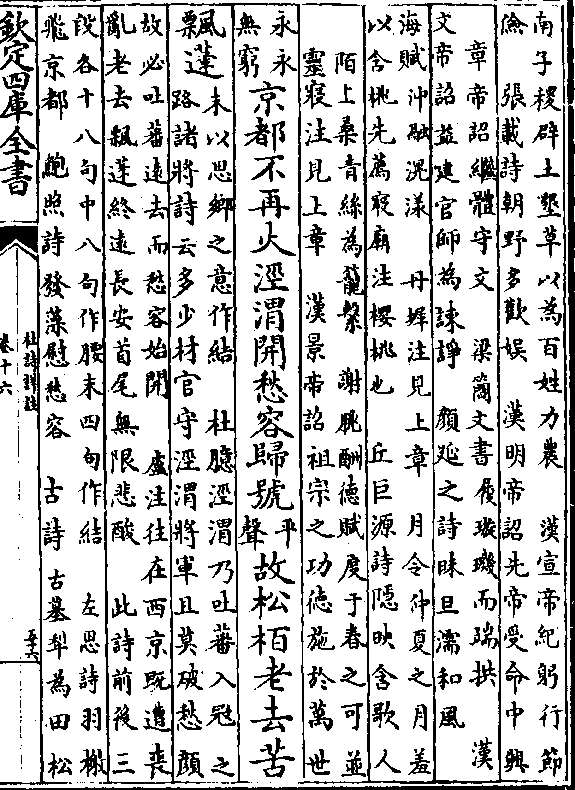 南子稷辟土墾草以為百姓力農　漢宣帝紀躬行節
儉　張載詩朝野多歡娱　漢明帝詔先帝受命中興
章帝詔繼體守文　梁簡文書履璇璣而端拱　漢
文帝詔益建官師為諫諍　顔延之詩昧旦濡和風
海賦沖融滉漾　丹墀注見上章　月令仲夏之月羞
以含桃先薦寝廟注櫻桃也　丘巨源詩隠映含歌人
陌上桑青絲為籠繫　謝朓酬德賦度于春之可並
靈寝注見上章　漢景帝詔祖宗之功德施於萬世
永永
無窮
京都不再火涇渭開愁容歸號平聲故松栢老去苦
飄蓬
末以思鄉之意作結　杜臆涇渭乃吐蕃入冦之
路諸將詩云多少材官守涇渭將軍且莫破愁顔
故必吐蕃遠去而愁容始開　盧注往在西京既遭喪
亂老去飄蓬終遠長安首尾無限悲酸　此詩前後三
段各十八句中八句作腰末四句作結　左思詩羽檄
飛京都　鮑照詩發藻慰愁容　古詩古墓犁為田松
欽定四庫全書
杜詩詳註
卷十六